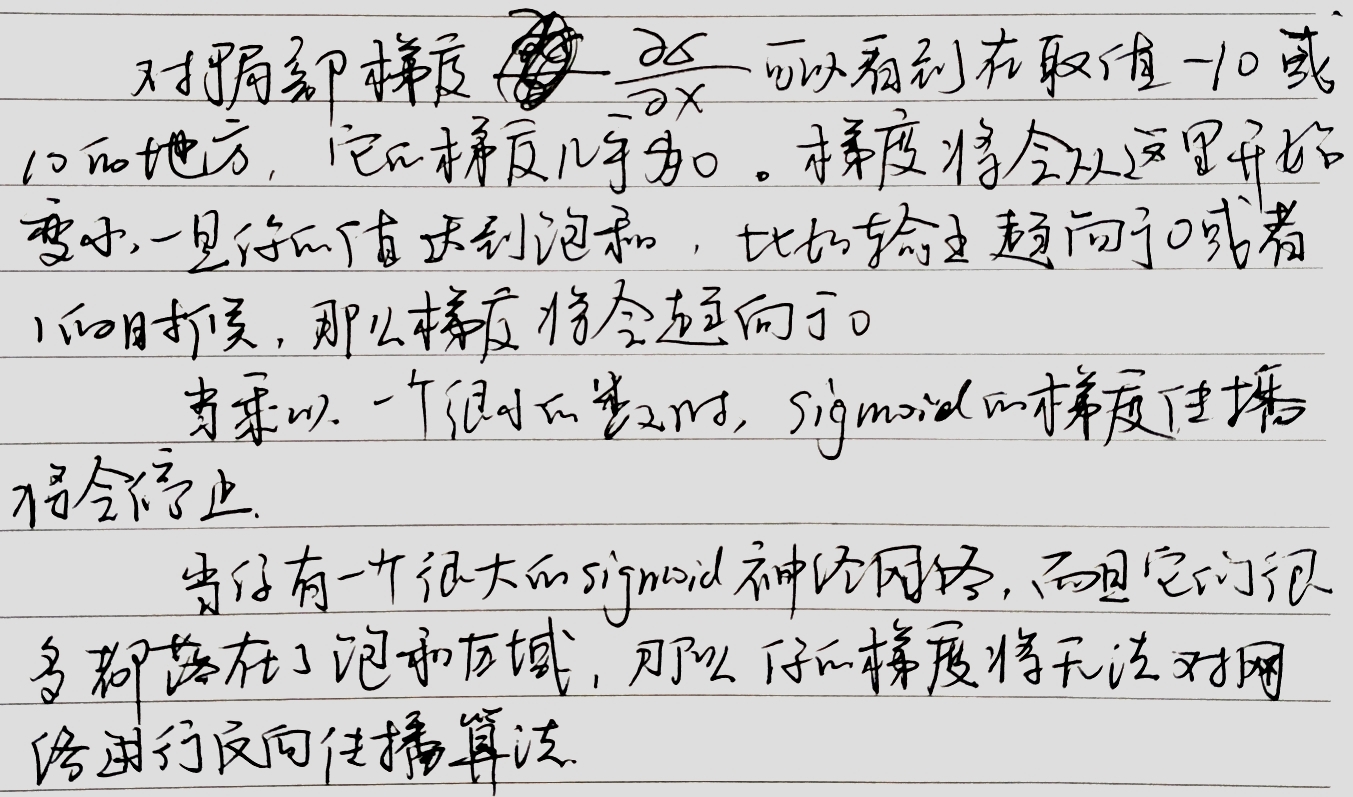 对于局部梯度 ∂σ/∂x 可以看到在取值-10或
10的地方,它的梯度几乎为0。梯度将会从这里开始
变小,一旦你的值达到饱和,比如输出趋向于0或者
1的时候,那么梯度将会趋向于0
当乘以一个很小的数时,sigmoid的梯度传播
将会停止.
当你有一个很大的sigmoid神经网络,而且它们很
多都落在了饱和区域,那么你的梯度将无法对网
络进行反向传播算法.